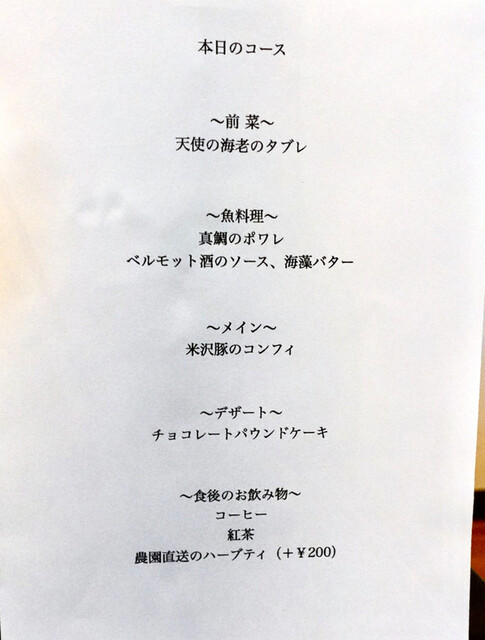 本日のコース
～前 菜～
天使の海老のタブレ
～魚料理～
真鯛のポワレ
ベルモット酒のソース、海藻バター
～メイン～
米沢豚のコンフィ
～デザート～
チョコレートパウンドケーキ
～食後のお飲み物～
コーヒー
紅茶
農園直送のハーブティ（＋￥200）